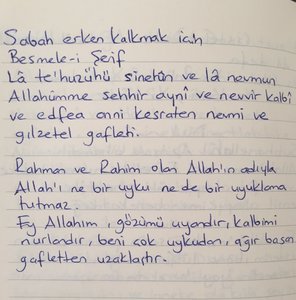 Sabah erken kalkmak için
Besmele-i Şerif
Lâ te'huzühü sinetün ve lâ nevmun
Allahümme sehhir aynî ve nevvir kalbî
ve edfea anni kesraten nevmi ve
gılzetel gafleti.
Rahman ve Rahim olan Allah'ın adıyla
Allah'ı ne bir uyku ne de bir uyuklama
tutmaz.
Ey Allahım, gözümü uyandır, kalbimi
nurlandır, beni çok uykudan, ağır basan
gafletten uzaklaştır.